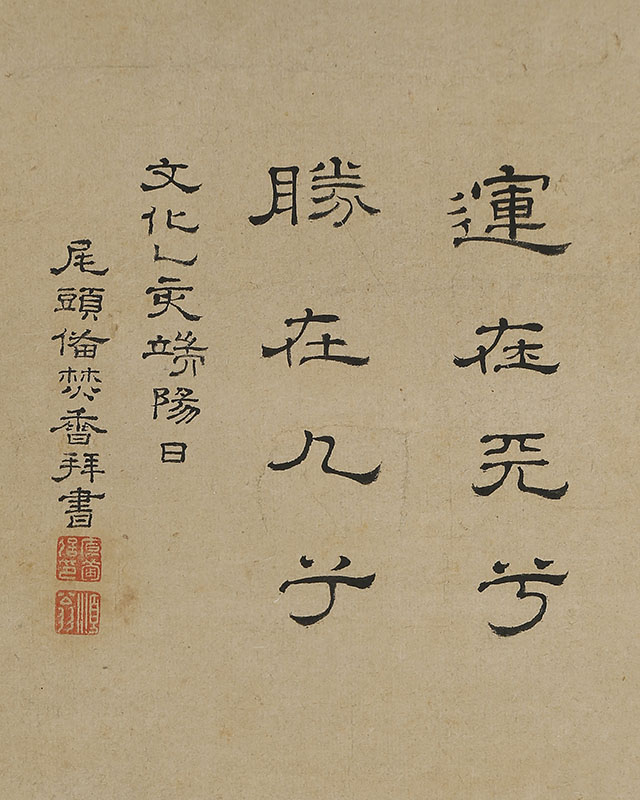 運在天兮
勝在人乎
文化乙亥端陽日
尾頭倫焚香拝書